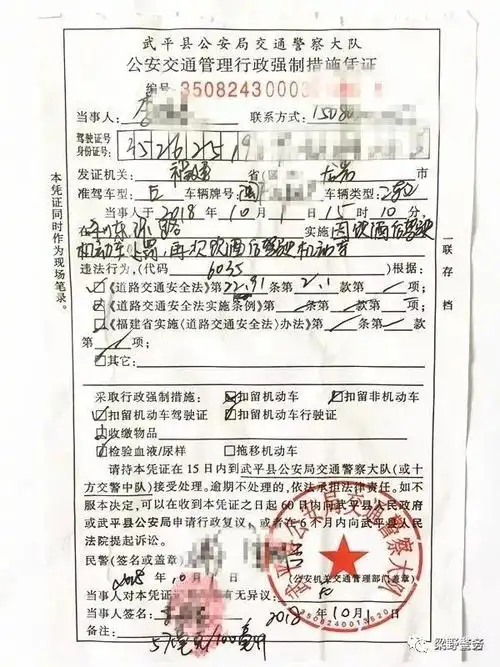 武平县公安局交通警察大队
公安交通管理行政强制措施凭证
编号:35082430003
当事人: 联系方式:150
驾驶证号
身份证号: 35262519
发证机关: 福建 省( 龙岩 市
准驾车型: E 车辆牌号: 闽 车辆类型:
当事人于2018年10月1日15时10分
在 实施因饮酒后驾驶
机动车 罚,再次饮酒后驾驶机动车
违法行为,(代码 6035 )根据:
《道路交通安全法》第22.91条第2.1款第 项;
《道路交通安全法实施条例》第 条第 款第 项;
《福建省实施〈道路交通安全法〉办法》第 条第 款
第 项;
其它:
采取行政强制措施: 扣留机动车 扣留非机动车
扣留机动车驾驶证 扣留机动车行驶证
收缴物品
检验血液/尿样 拖移机动车
请持本凭证在15日内到武平县公安局交通警察大队(或十
方交警中队)接受处理。逾期不处理的,依法承担法律责任。如不
服本决定,可以在收到本凭证之日起60日内向武平县人民政府
或武平县公安局申请行政复议,或者在6个月内向武平县人民法
院提起诉讼。
民警(签名或盖章)
2018年10月
(公安机关交通管理部门盖章)
当事人对本凭证 有无异议:
当事人签名: 2018年10月1日
备注: 57毫克/100毫升
本凭证同时作为现场笔录。
一联存档
武平县公安局交通警察大队
梁野警务